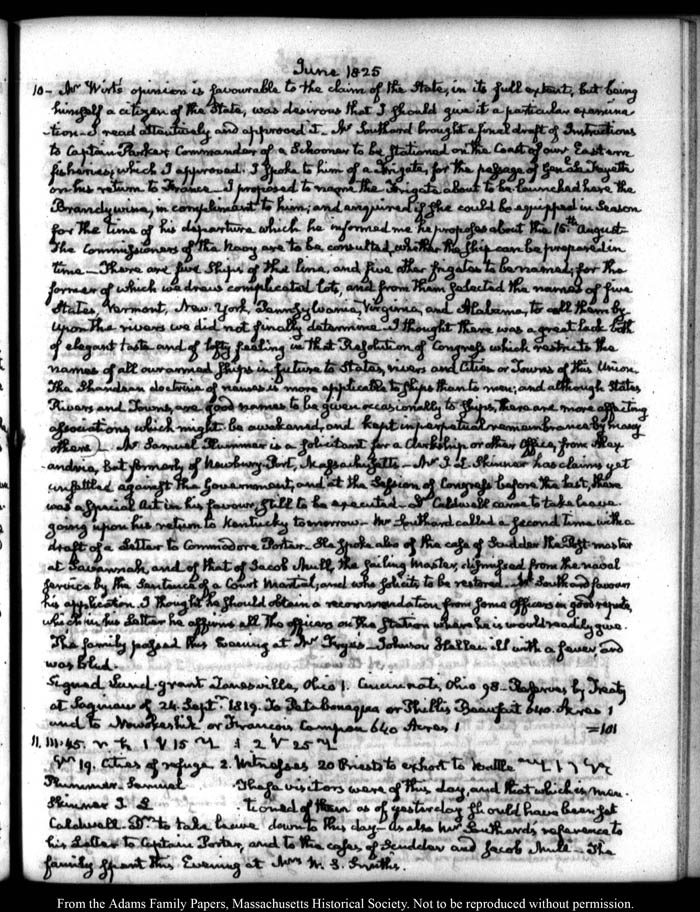 June 1825
10 - Mr Wirt's opinion is favourable to the claim of the State, in its full extent, but being
himself a citizen of the State, was desirous that I should give it a particular examina
-tion - I read attentively and approved it - Mr Southard brought a final draft of Instructions
to Captain Parker, Commander of a Schooner to be stationed on the Coast of our Eastern
fisheries; which I approved. I spoke to him of a Frigate, for the passage of Genl. La Fayette
on his return to France - I proposed to name the Frigate about to be launched here the
Brandywine, in compliment to him; and enquired if she could be equipped in Season
for the time of his departure which he informed me he proposes about the 15th. August -
The Commissioners of the Navy are to be consulted, whether the ship can be prepared in
time - There are five Ships of the line, and five other frigates to be named; for the
former of which we drew complicated lots, and from them selected the names of five
States, Vermont, New-York, Pennsylvania, Virginia, and Alabama, to call them by.
Upon the rivers we did not finally determine - I thought there was a great lack both
of elegant taste and of lofty feeling in that Resolution of Congress which restricts the
names of all our armed ships in future to States, rivers and Cities or Towns of this Union.
The Shandean doctrine of names is more applicable to ships than to men; and although States
Rivers and Towns, are good names to be given occasionally to ships, there are more affecting
associations which might be awakened, and kept in perpetual remembrance by many
others) - Mr Samuel Plummer is a solicitant for a Clerkship or other Office, from Alex
andria, but formerly of Newbury-Port, Massachusetts - Mr I. L. Skinner has claims yet
unsettled against the Government, and at the Session of Congress before the last, there
was a special Act in his favour, still to be executed - Dr Caldwell came to take leave
going upon his return to Kentucky to-morrow - Mr Southard called a second time with a
draft of a Letter to Commodore Porter - He spoke also of the case of Scudder the Post-master
at Savannah, and of that of Jacob Mull, the Sailing Master, dismissed from the naval
service by the Sentence of a Court Martial, and who solicits to be restored - Mr Southard favours
his application. I thought he should obtain a recommendation from some Officers in good repute,
which in his Letter he affirms all the officers on the Station where he is would readily give.
The family passed this Evening at Mr Frye's - Johnson Hellen ill with a fever and
was bled -
Signed Land-grant Zanesville, Ohio 1. Cincinnati, Ohio 98 - Reserves by Treaty
at Saginaw of 24. Septr. 1819. To Petabonaqua or Phillis Beaufait 640. Acres 1
and to Nowokeshik or Francois Campau 640 Acres 1 =101
11. III:45.
19. Cities of refuge. 2. Witnesses 20 Priests to exhort to battle
Plummer. Samuel These visitors were of this day, and that which is men
Skinner I. L tioned of them as of yesterday should have been set
Caldwell - Dr. to take leave down to this day - As also Mr Southard's reference to
his Letter to Captain Porter, and to the cases of Scudder and Jacob Mull - The
family spent this Evening at Mrs W. S. Smith's.
From the Adams Family Papers, Massachusetts Historical Society. Not to be reproduced without permission.